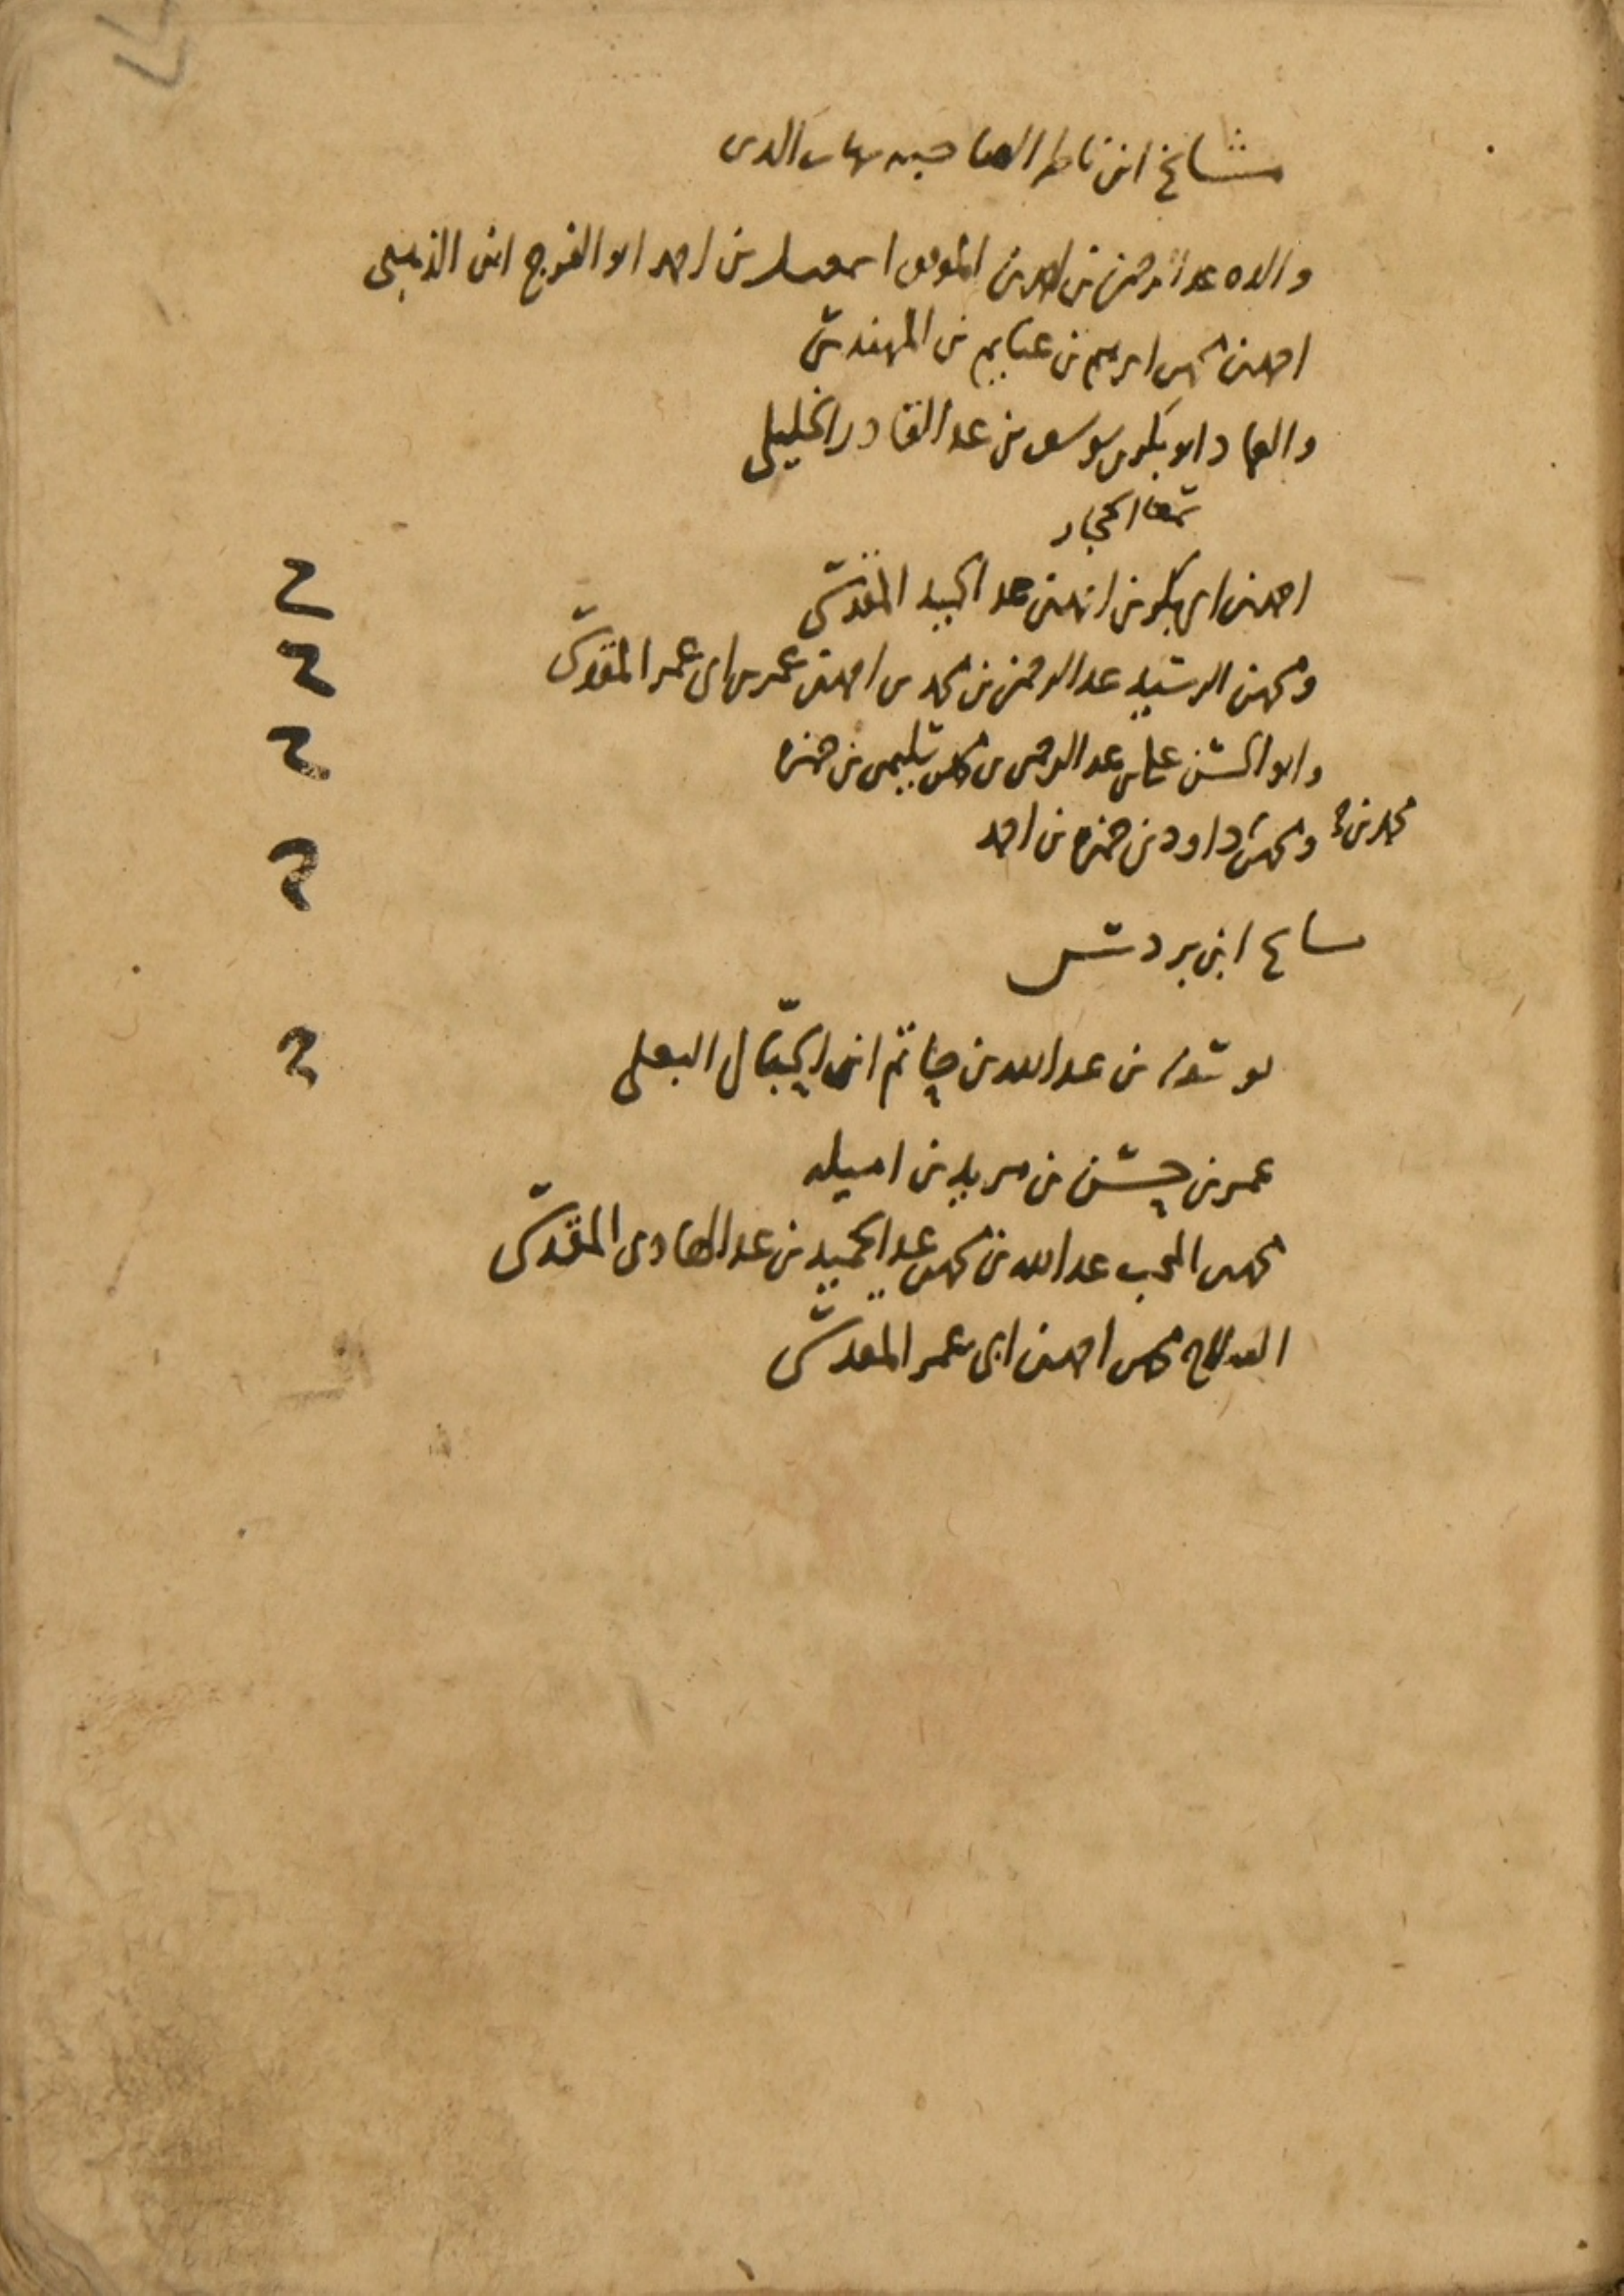 مشايخ ابن ناظر الصاحبه شهاب الدين
والده عبد الرحمن بن احمد بن الموفق اسمعيل بن احمد ابو الفرج ابن الذهبي
احمد بن محمد بن ابرهيم بن غنايم بن المهندس
والعماد ابو بكر بن يوسف بن عبد القادر الخليلي
سمعا الحجار
احمد بن ابي بكر بن احمد بن عبد الحميد المقدسي
ومحمد بن الرشيد عبد الرحمن بن محمد بن احمد بن عمر بن ابي عمر المقدسي
وابو الحسن علي بن عبد الرحمن بن محمد بن سليمن بن حمزه
محمد بن
ومحمد بن داود بن حمزه بن احمد
مشايخ ابن بردس
يوسف بن عبد الله بن حاتم ابن الحبال البعلي
عمر بن حسن بن مزيد بن اميله
محمد بن المحب عبد الله بن محمد بن عبد الحميد بن عبد الهادي المقدسي
الصلاح محمد بن احمد بن ابي عمر المقدسي